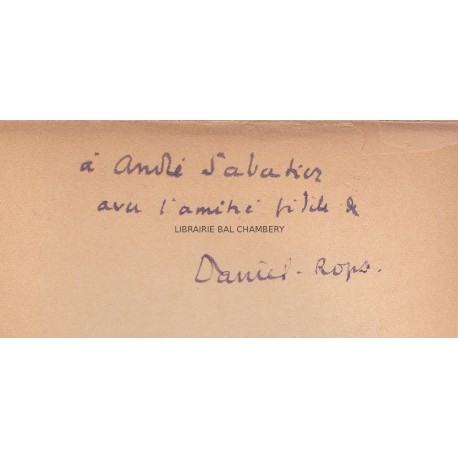 à André Sabatier
avec l'amitié fidèle de
LIBRAIRIE BAL CHAMBERY
Daniel-Rops.